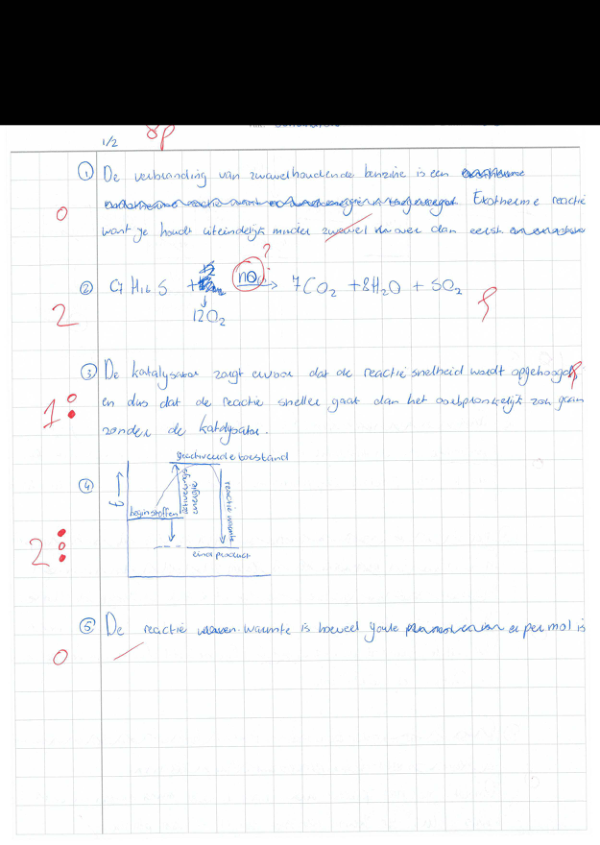 1/2 8p
① De verbranding van zwavelhoudende benzine is een
Exotherme reactie
0
want je houdt uiteindelijk minder zwavel over dan eerst
?
② C7 H16 S + NO → 7CO2 + 8H2O + SO2
12O2
2
③ De katalysator zorgt ervoor dat de reactie snelheid wordt opgehoogd
en dus dat de reactie sneller gaat dan het oorspronkelijk zou gaan
1
zonder de katalysator.
geactiveerde toestand
④
E
activerings energie
reactie warmte
beginstoffen
2
eindproduct
⑤ De reactie warmte is hoeveel joule er per mol is
0